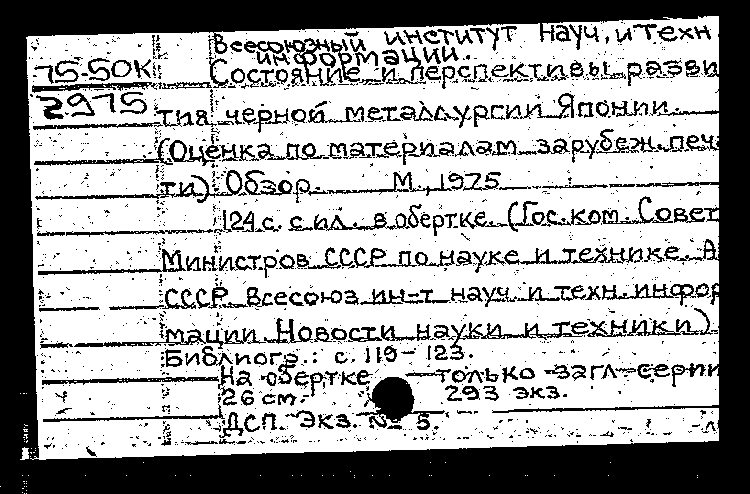 Всесоюзный институт науч. и техн.
информации.
75-50К Состояние и перспективы разви
2975 тия черной металлургии Японии.
(Оценка по материалам зарубеж. печа
ти). Обзор. М., 1975
124 с. с ил. в обертке. (Гос. ком. Совет
Министров СССР по науке и технике. А
СССР. Всесоюз ин-т науч. и техн. инфор
мации. Новости науки и техники)
Библиогр.: с. 119-123.
На обертке только загл. серии
26 см. 293 экз.
ДСП. Экз. № 5.